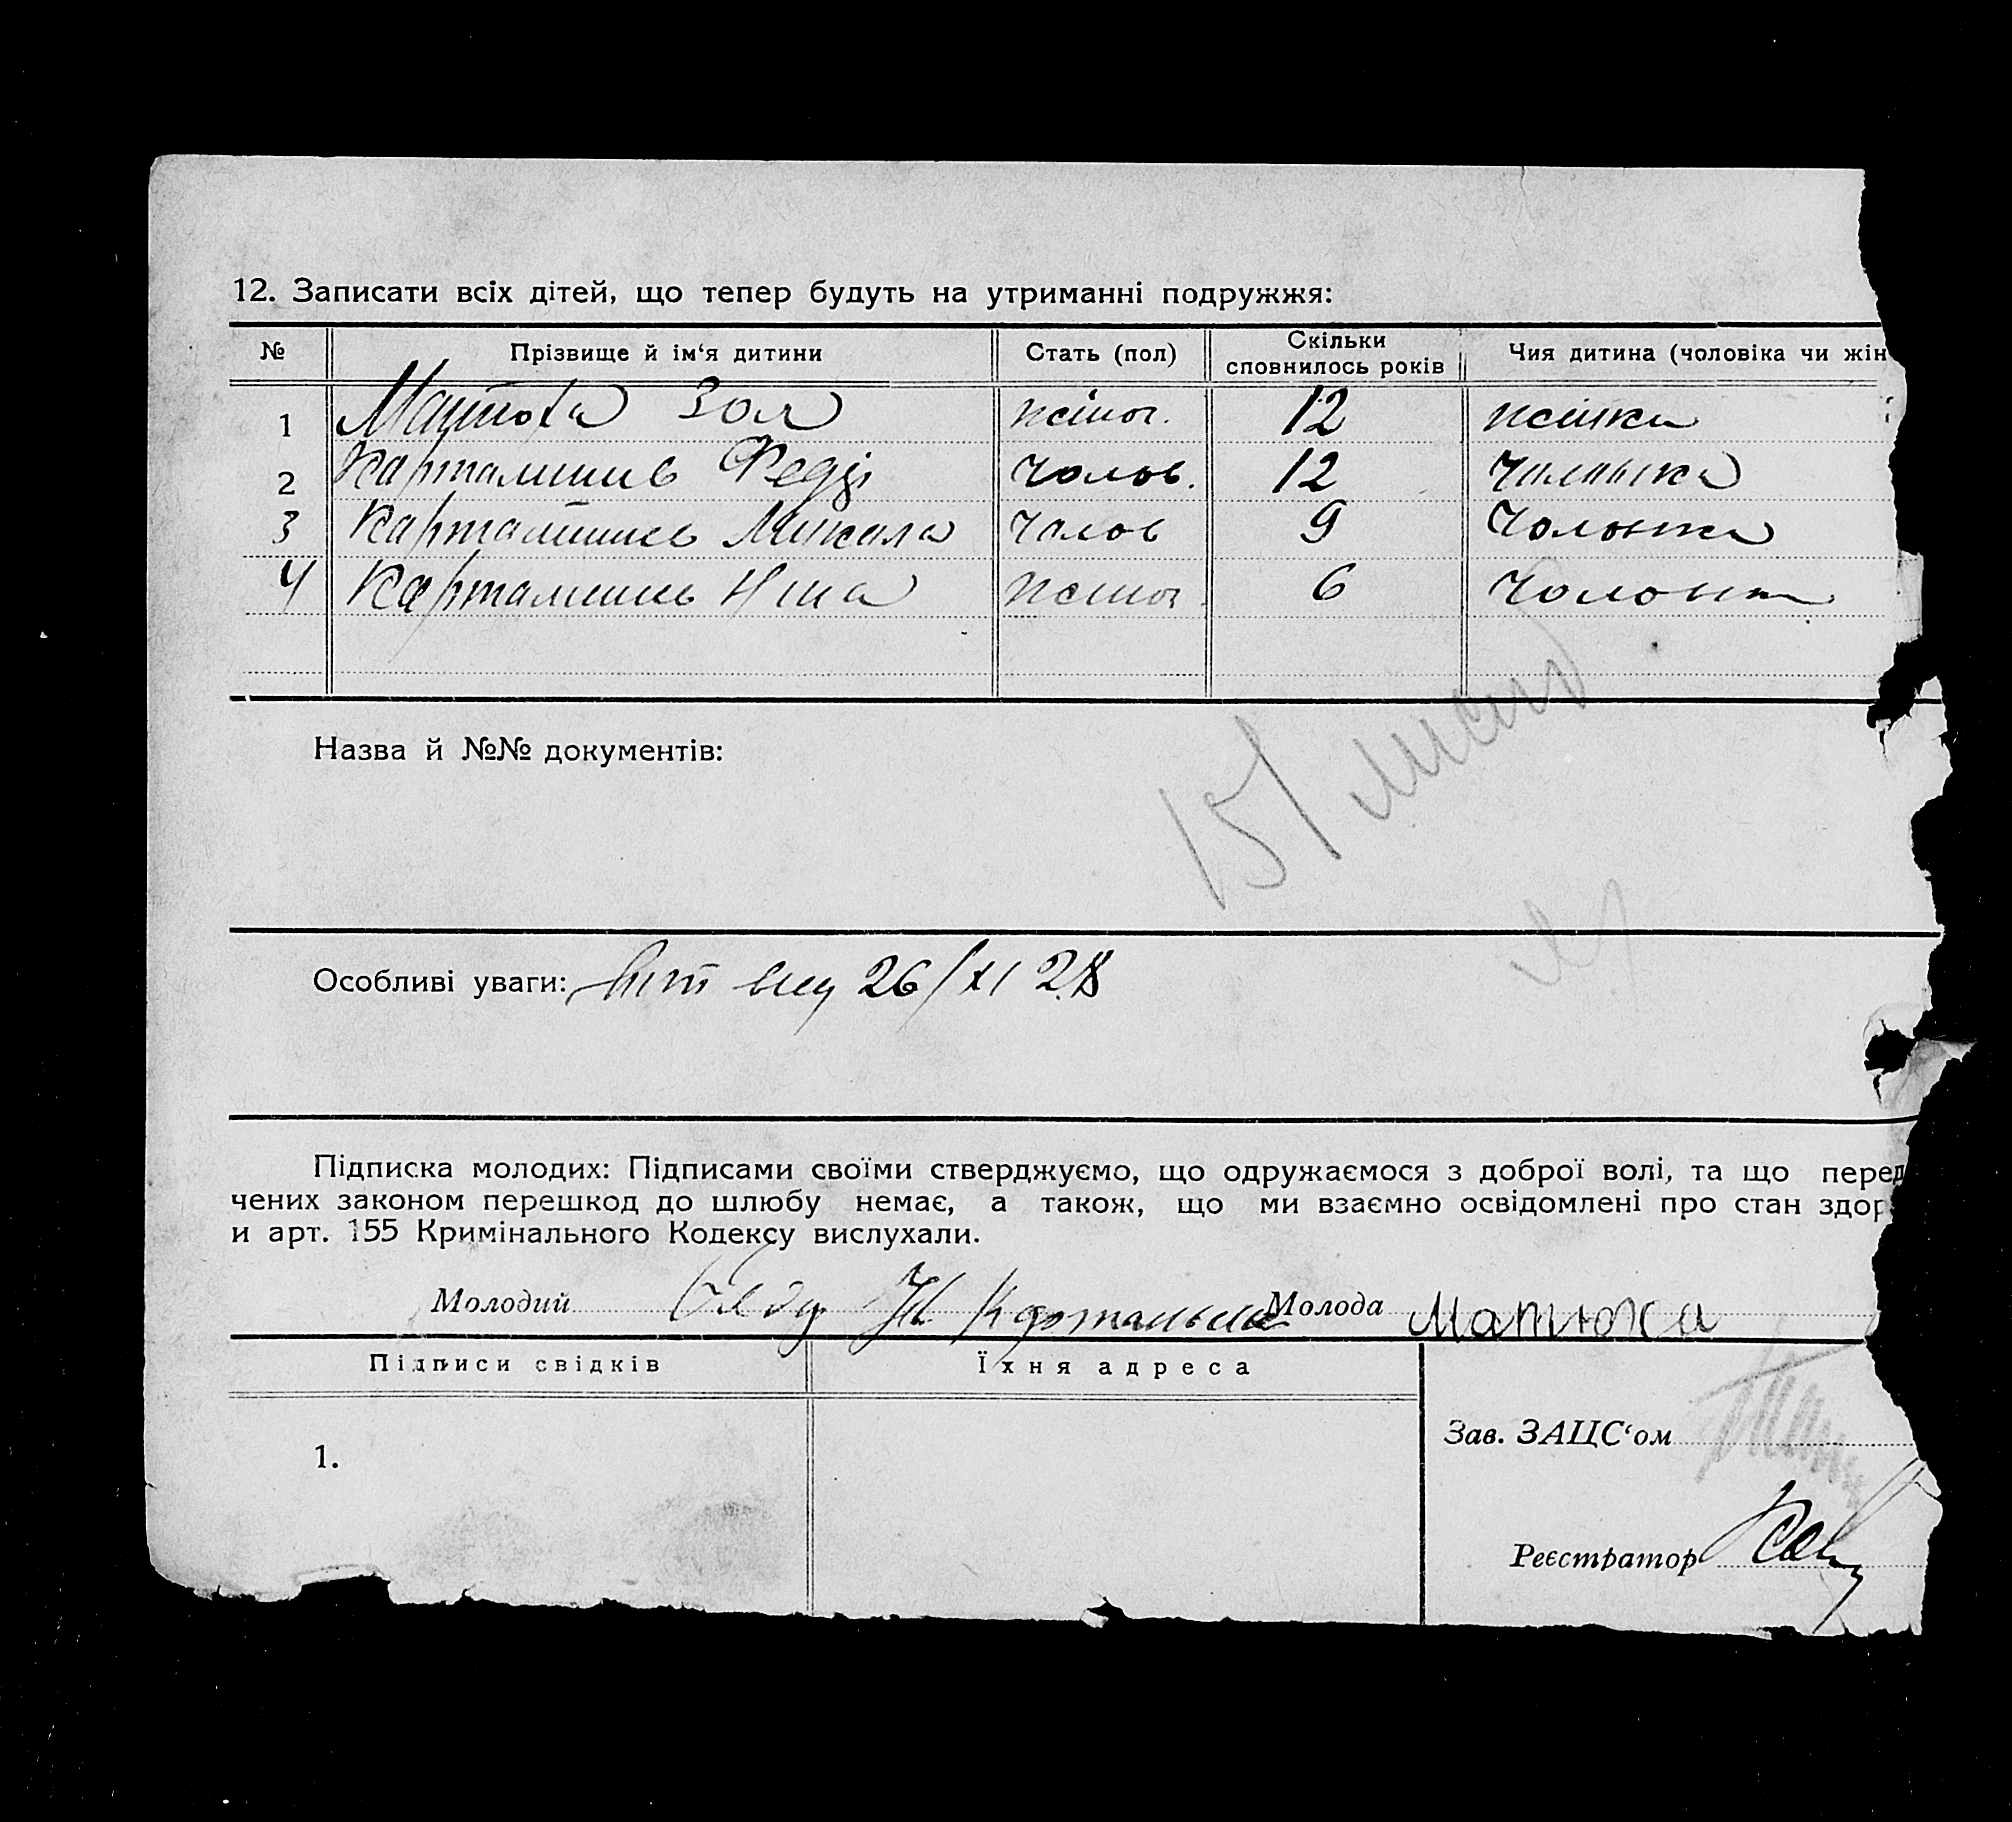 12. Записати всіх дітей, що тепер будуть на утриманні подружжя:
№ Прізвище й ім‘я дитини Стать (пол) Скільки сповнилось років Чия дитина (чоловіка чи жін
1 Матюха Зоя жіноч. 12 жінки
2 Карталишив Федір чолов. 12 чоловіка
3 Карталишив Микола чолов 9 чоловіка
4 Карталишив Ніна жіноч. 6
Назва й №№ документів:
151
Особливі уваги: 26/XI 28
Підписка молодих: Підписами своїми стверджуємо, що одружаємося з доброї волі, та що перед
чених законом перешкод до шлюбу немає, а також, що ми взаємно освідомлені про стан здор
и арт. 155 Кримінального Кодексу вислухали.
Молодий Молода Матюха
Підписи свідків Їхня адреса
Зав. ЗАЦС‘ом
1.
Реєстратор